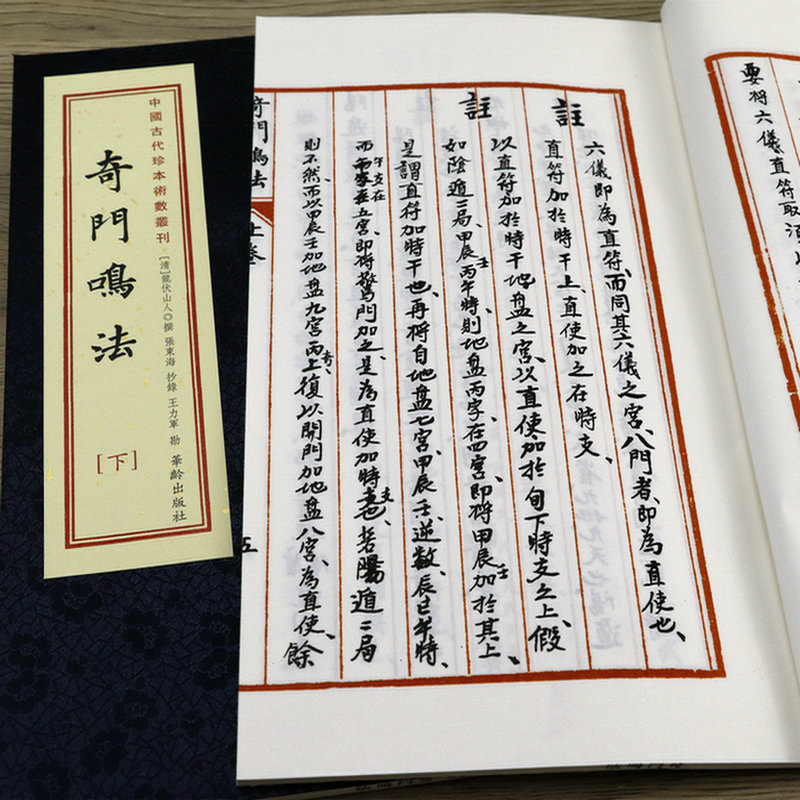 中國古代珍本術數叢刊
奇門鳴法
[清]龍伏山人◎撰 張東海 抄錄 王力軍 勘 華齡出版社
[下]
要將六儀直符取
六儀即為直符、而同其六儀之宮、八門者、即為直使也、
註
直符加於時干上、直使加之在時支、
以直符加於時干地盤之宮、以直使加於旬下時支之上、假
註
如陰遁二局、甲辰壬丙午時、則地盤丙字在四宮、即將甲辰壬加於其上、
是謂直符加時干也、再將自地盤七宮、甲辰壬、逆數、辰巳午時、
而午支在五宮、即將驚門加之、是為直使加時支也、若陽遁二局
則不然、而以甲辰壬加地盤九宮丙奇、上復以開門加地盤八宮、為直使、餘
奇門鳴法
上卷
五